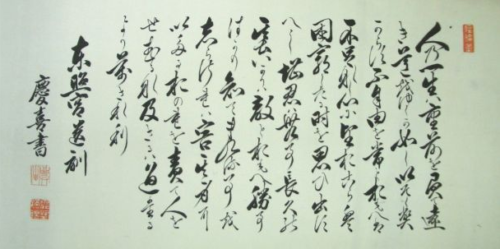 人の一生は重荷を負て遠
き道を行くが如しいそぐべ
からず不自由を常と思へば
不足なし心に望おこらば
困窮したる時を思ひ出す
べし堪忍は無事長久の
基いかりは敵とおもへ勝事
ばかり知てまくる事を
しらざれば害其身に
いたるおのれを責て人を
せむるな及ばざるは過たる
よりまされり
東照宮遺訓
慶喜書